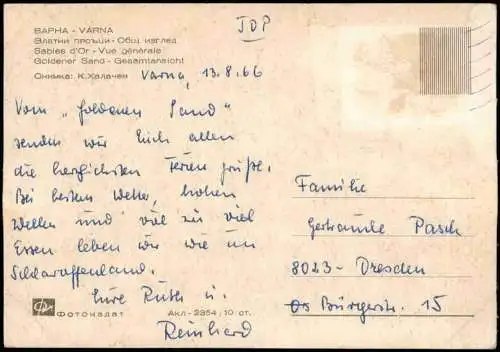 TOP
ВАРНА - VARNA
Златни пясъци - Общ изглед
Sables d'Or - Vue générale
Goldener Sand - Gesamtansicht
Снимка: К. Халачев
Varna, 13.8.66
Vom "Goldenen Sand"
senden wir Euch allen
die herzlichsten Feriengrüße.
Bei bestem Wetter, hohen
Wellen und viel zu viel
Essen leben wir wie im
Schlaraffenland.
Eure Ruth u.
Reinhard
Familie
Gertraude Pasch
8023 - Dresden
Bürgerstr. 15
Фотоиздат
Акл - 2354; 10 ст.